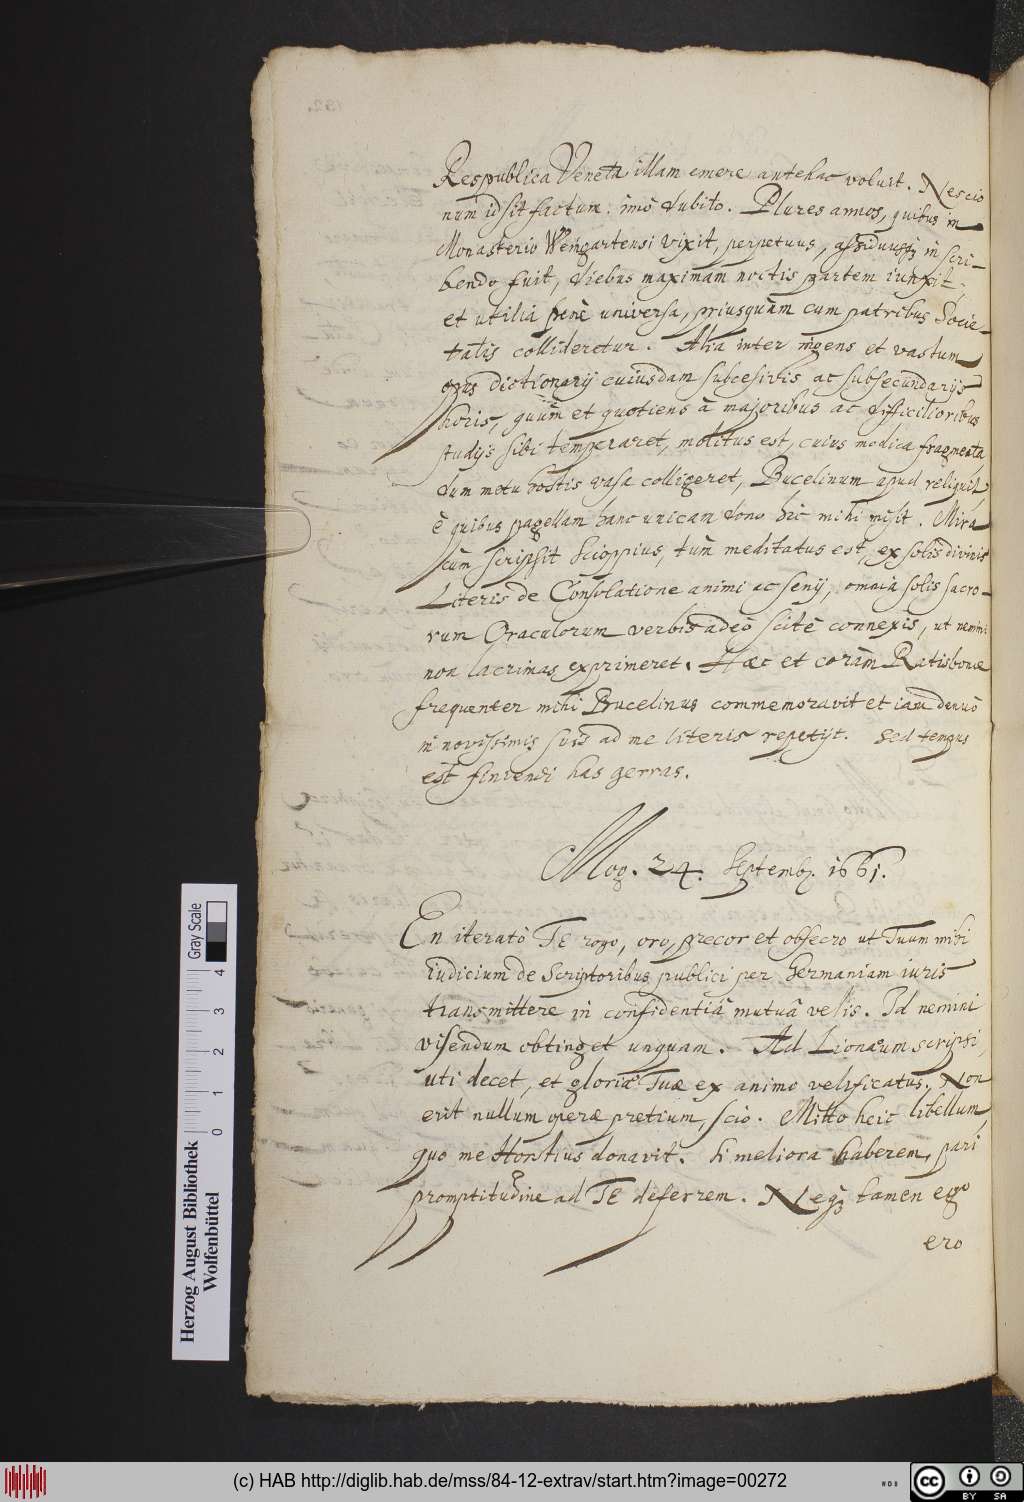 Respublica Veneta illam emere antehac voluit. Nescio
num id sit factum. imò dubito. Plures annos, quibus in
Monasterio Weingartensi vixit, perpetuus, assiduusq; in scri-
bendo fuit, diebus maximam noctis partem iunxit,
et utilia penè universa, priusquàm cum patribus Socie-
tatis collideretur. Alia inter ingens et vastum
opus dictionarij cuiusdam subcesivis ac subsecundarijs
horis, quùm et quotiens à majoribus ac difficilioribus
studijs sibi temperaret, molitus est, cuius modica fragmenta,
dum metu hostis vasa colligeret, Bucelinum apud reliquit,
è quibus pagellam hanc unicam dono hic mihi misit. Mira
cùm scripsit Scioppius, tùm meditatus est, ex solis divinis
Literis de Consolatione animi ac senij, omnia solis sacro-
rum Oraculorum verbis adeò scitè connexis, ut nemini
non lacrimas exprimeret. Haec et coràm Ratisbonae
frequenter mihi Bucelinus commemoravit et iam denuò
in novissimis suis ad me literis repetijt. Sed tempus
est finiendi has gerras.
Mog. 24. Septemb. 1661.
En iteratò TE rogo, oro, precor et obsecro ut Tuum mihi
iudicium de Scriptoribus publici per Germaniam iuris
transmittere in confidentiâ mutuâ velis. Id nemini
visendum obtinget unquam. Ad Lionaeum scripsi,
uti decet, et gloriae Tuae ex animo velificatus. Non
erit nullum operae pretium, scio. Mitto heic libellum,
quo me Horstius donavit. Si meliora haberem, pari
promptitudine ad TE deferrem. Neq; tamen ego
ero
132.
Herzog August Bibliothek
Wolfenbüttel
0 1 2 3 4
Gray Scale
(c) HAB http://diglib.hab.de/mss/84-12-extrav/start.htm?image=00272
cc BY SA